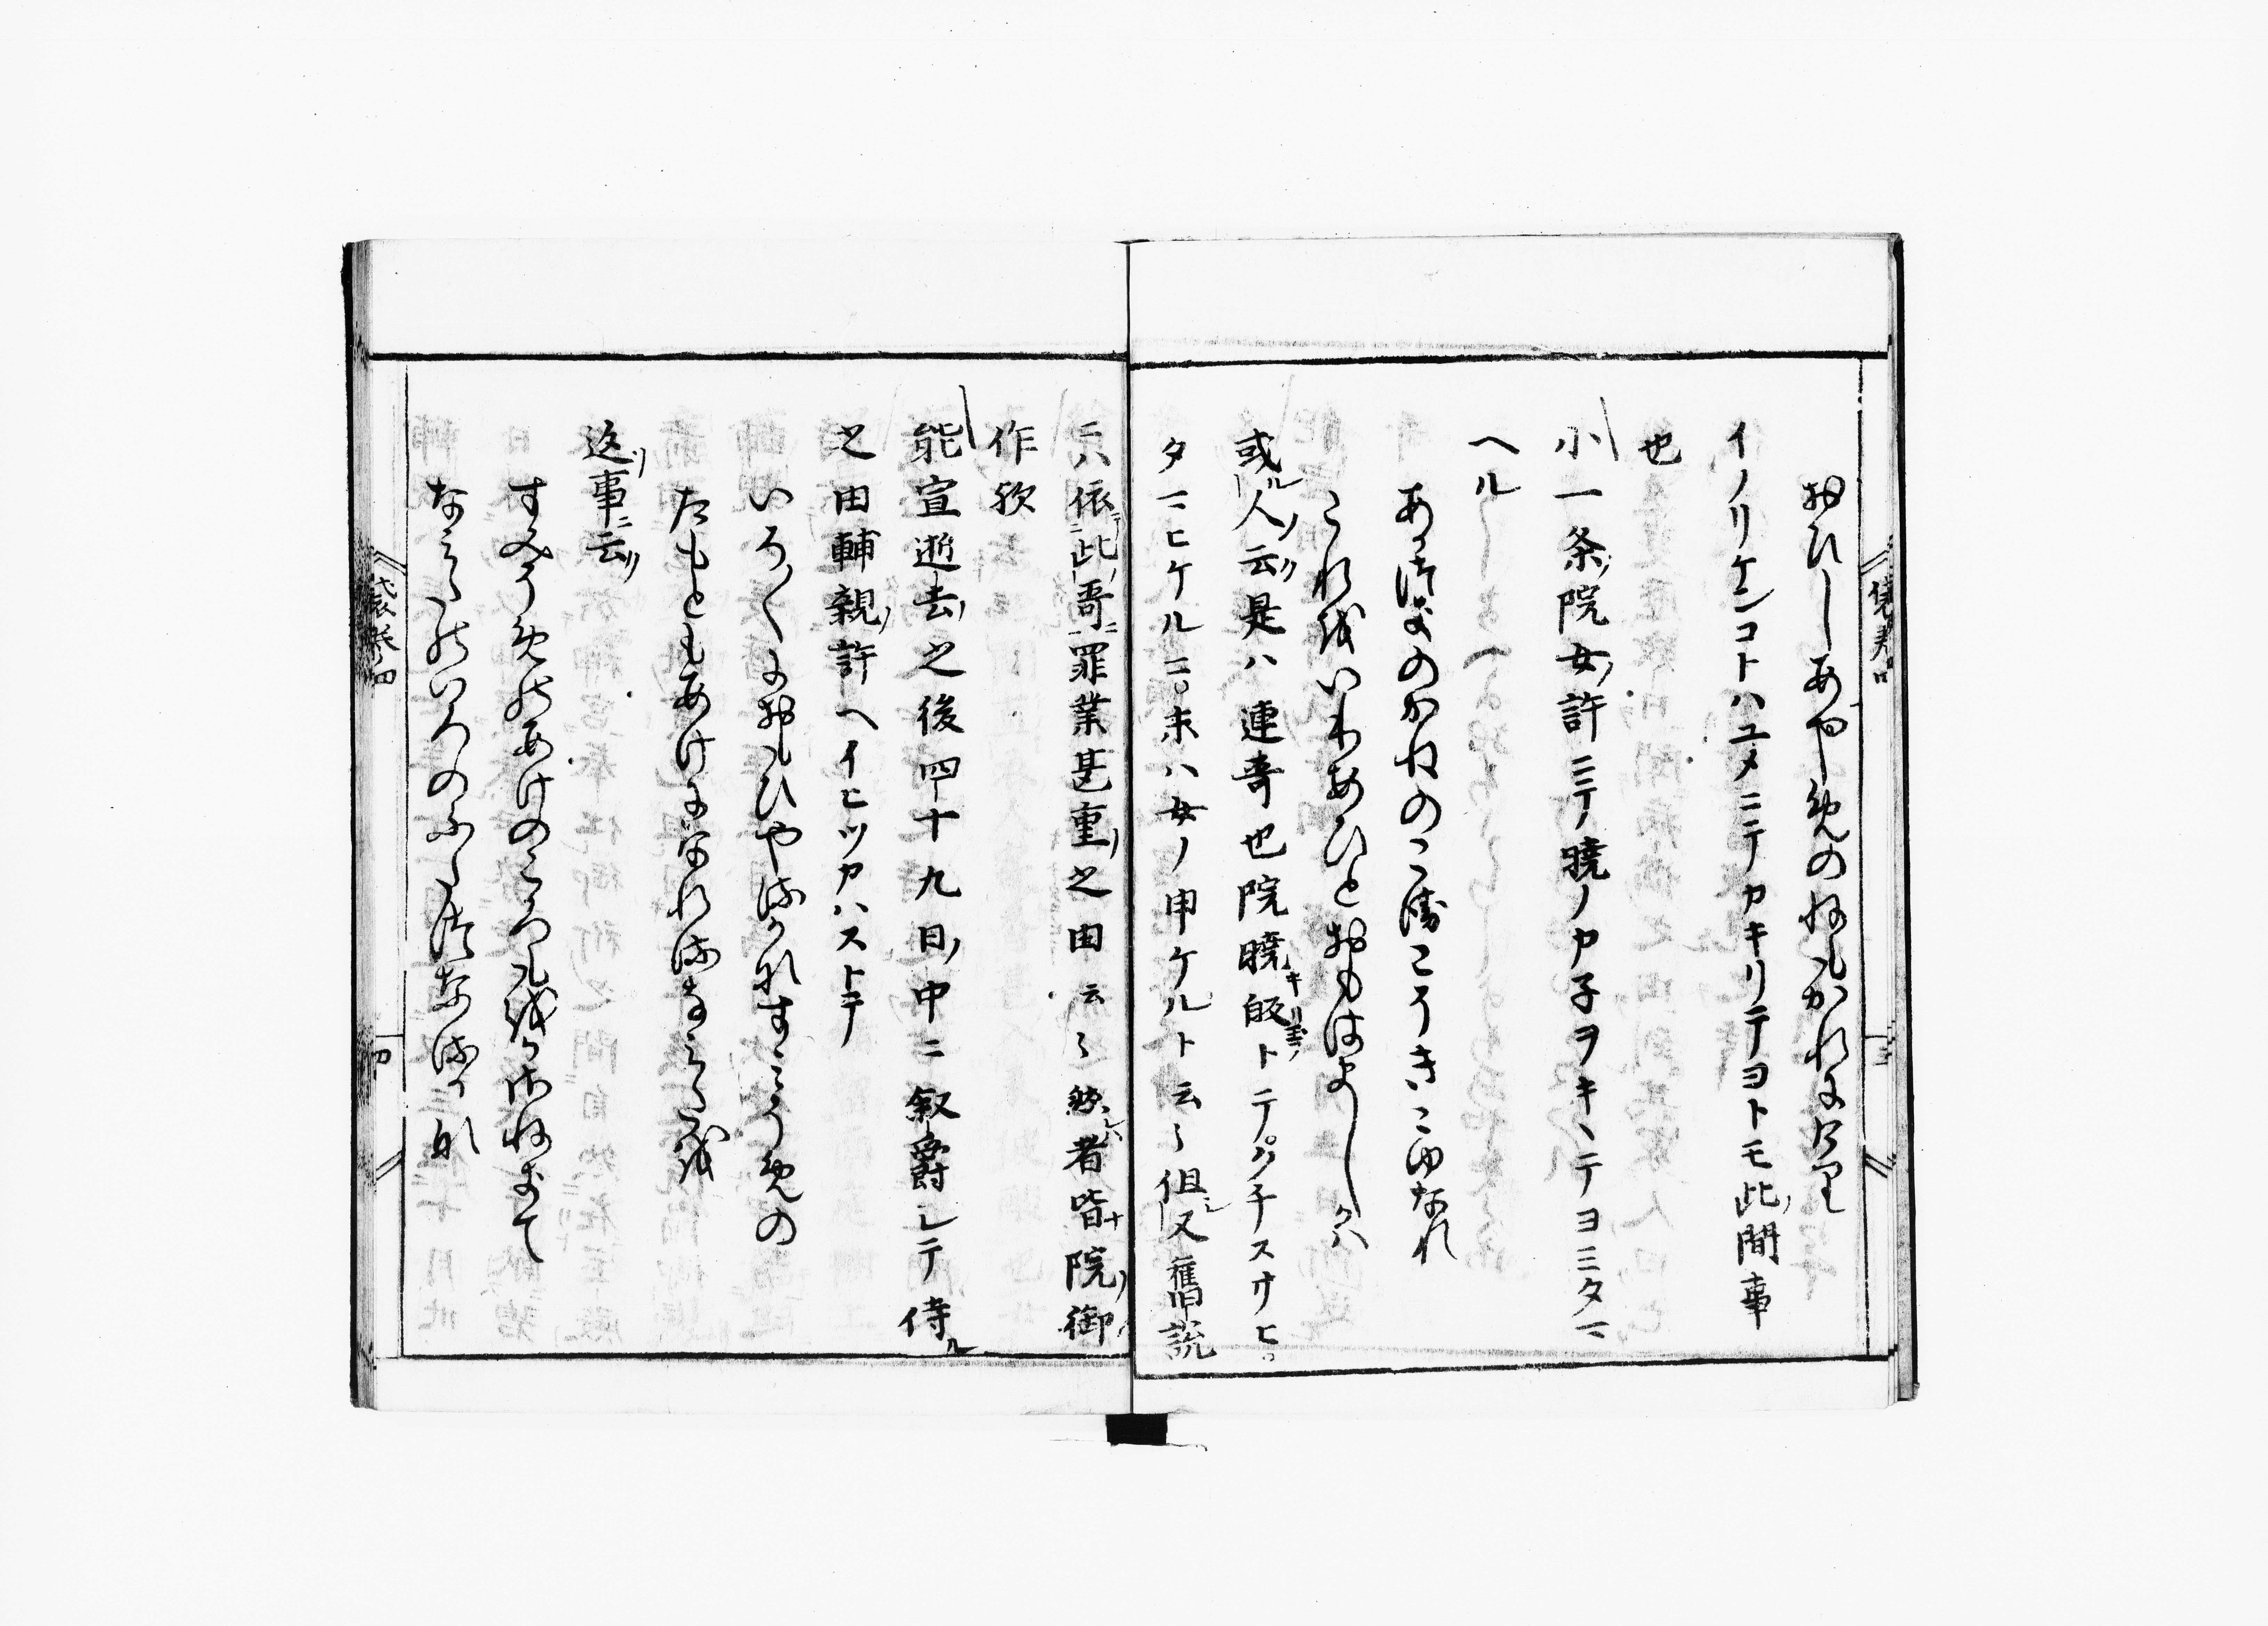 おひしあやめのねもかれにけり
イノリケンコトハユメニテカキリテヨトモ此間事
也
小一条院女許ニテ暁ノカ子ヲキヽテヨミタマ
ヘル
あかつきのかねのこゑこそきこゆなれ
これをいりあひとおもはましかは
或人云是ハ連哥也院暁皈トテハ子スサヒ
タマヒケルニ末ハ女ノ申ケルト云々但又舊説
ニハ依此哥罪業甚重之由云々然者皆院御
作欤
能宣逝去之後四十九日中ニ叙爵シテ侍
之由輔親許ヘイヒツカハストテ
いろ〳〵におもひやるかなすみそめの
たもともあけになれるなみたを
返事ニ云
すみそめにあけのころもをかさねきて
なみたのいろのふたつなるかな
袋巻四
四